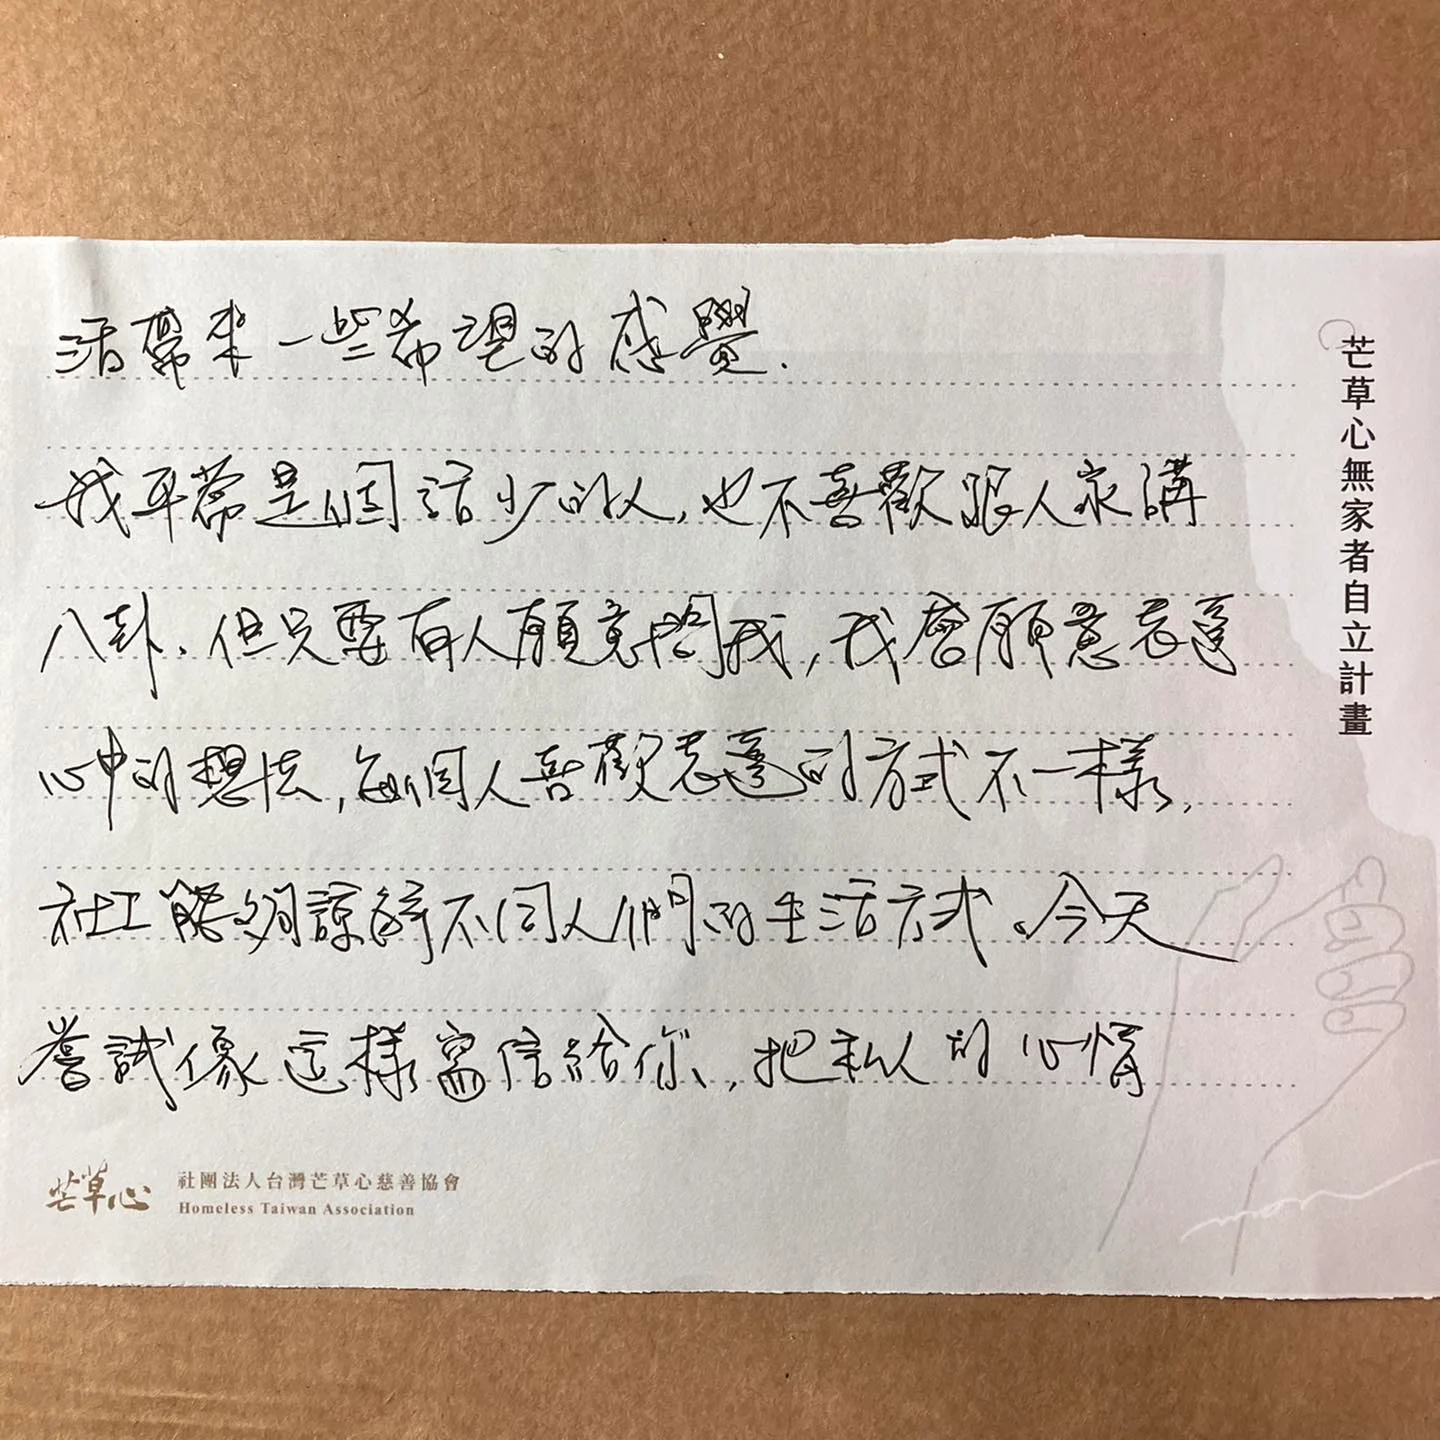 活帶來一些希望的感覺.
我平常是個話少的人,也不喜歡跟人家講
八卦、但只要有人願意問我,我會願意表達
心中的想法,每個人喜歡表達的方式不一樣,
社工能夠諒解不同人們的生活方式。今天
嘗試像這樣寫信給你,把私人的心情
芒草心無家者自立計畫
芒草心
社團法人台灣芒草心慈善協會
Homeless Taiwan Association